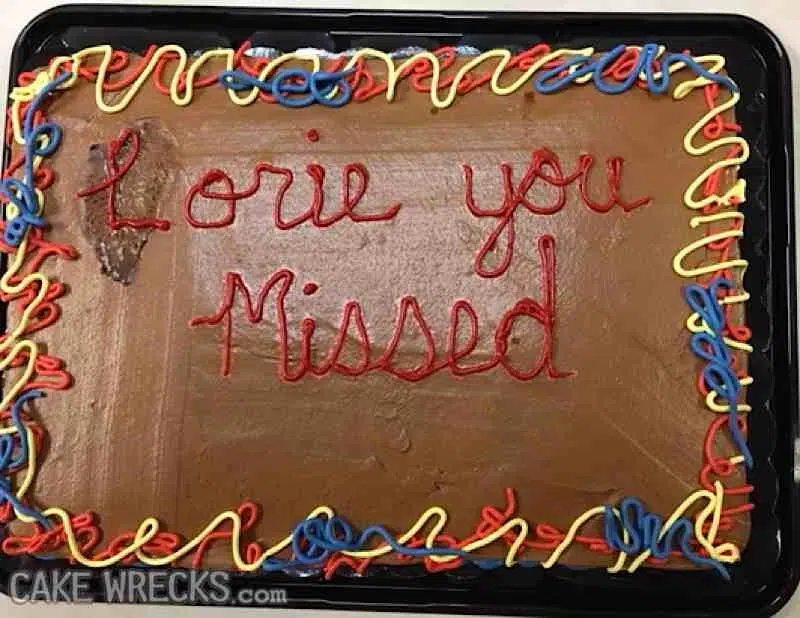 Lorie you
Missed
CAKE WRECKS.com